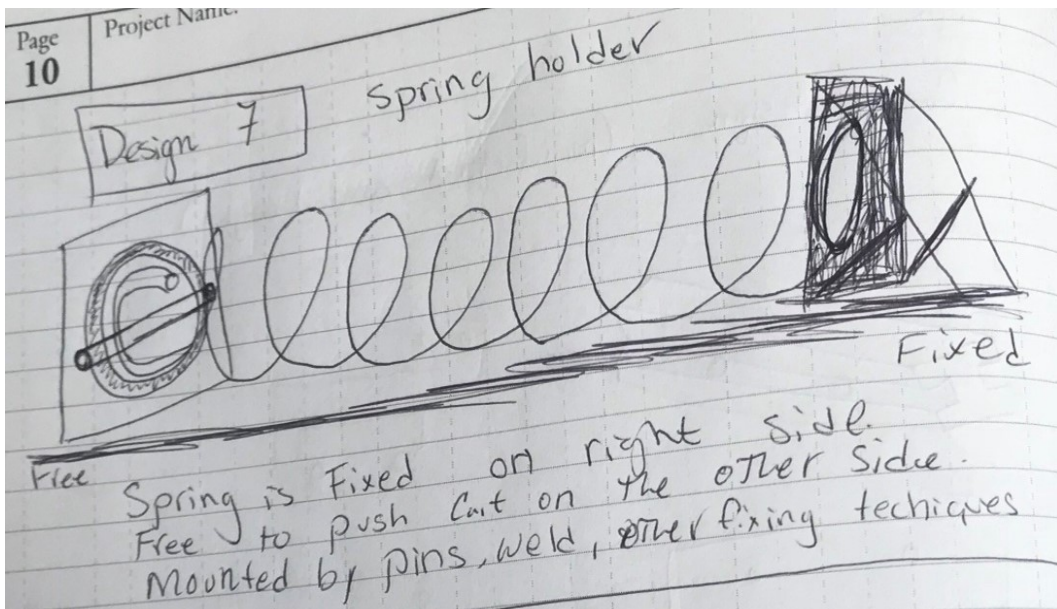 Page
10
Project Name:
Design 7
Spring holder
Fixed
Free
Spring is Fixed on right side.
Free to push Cart on the other side.
Mounted by pins, weld, other fixing techiques